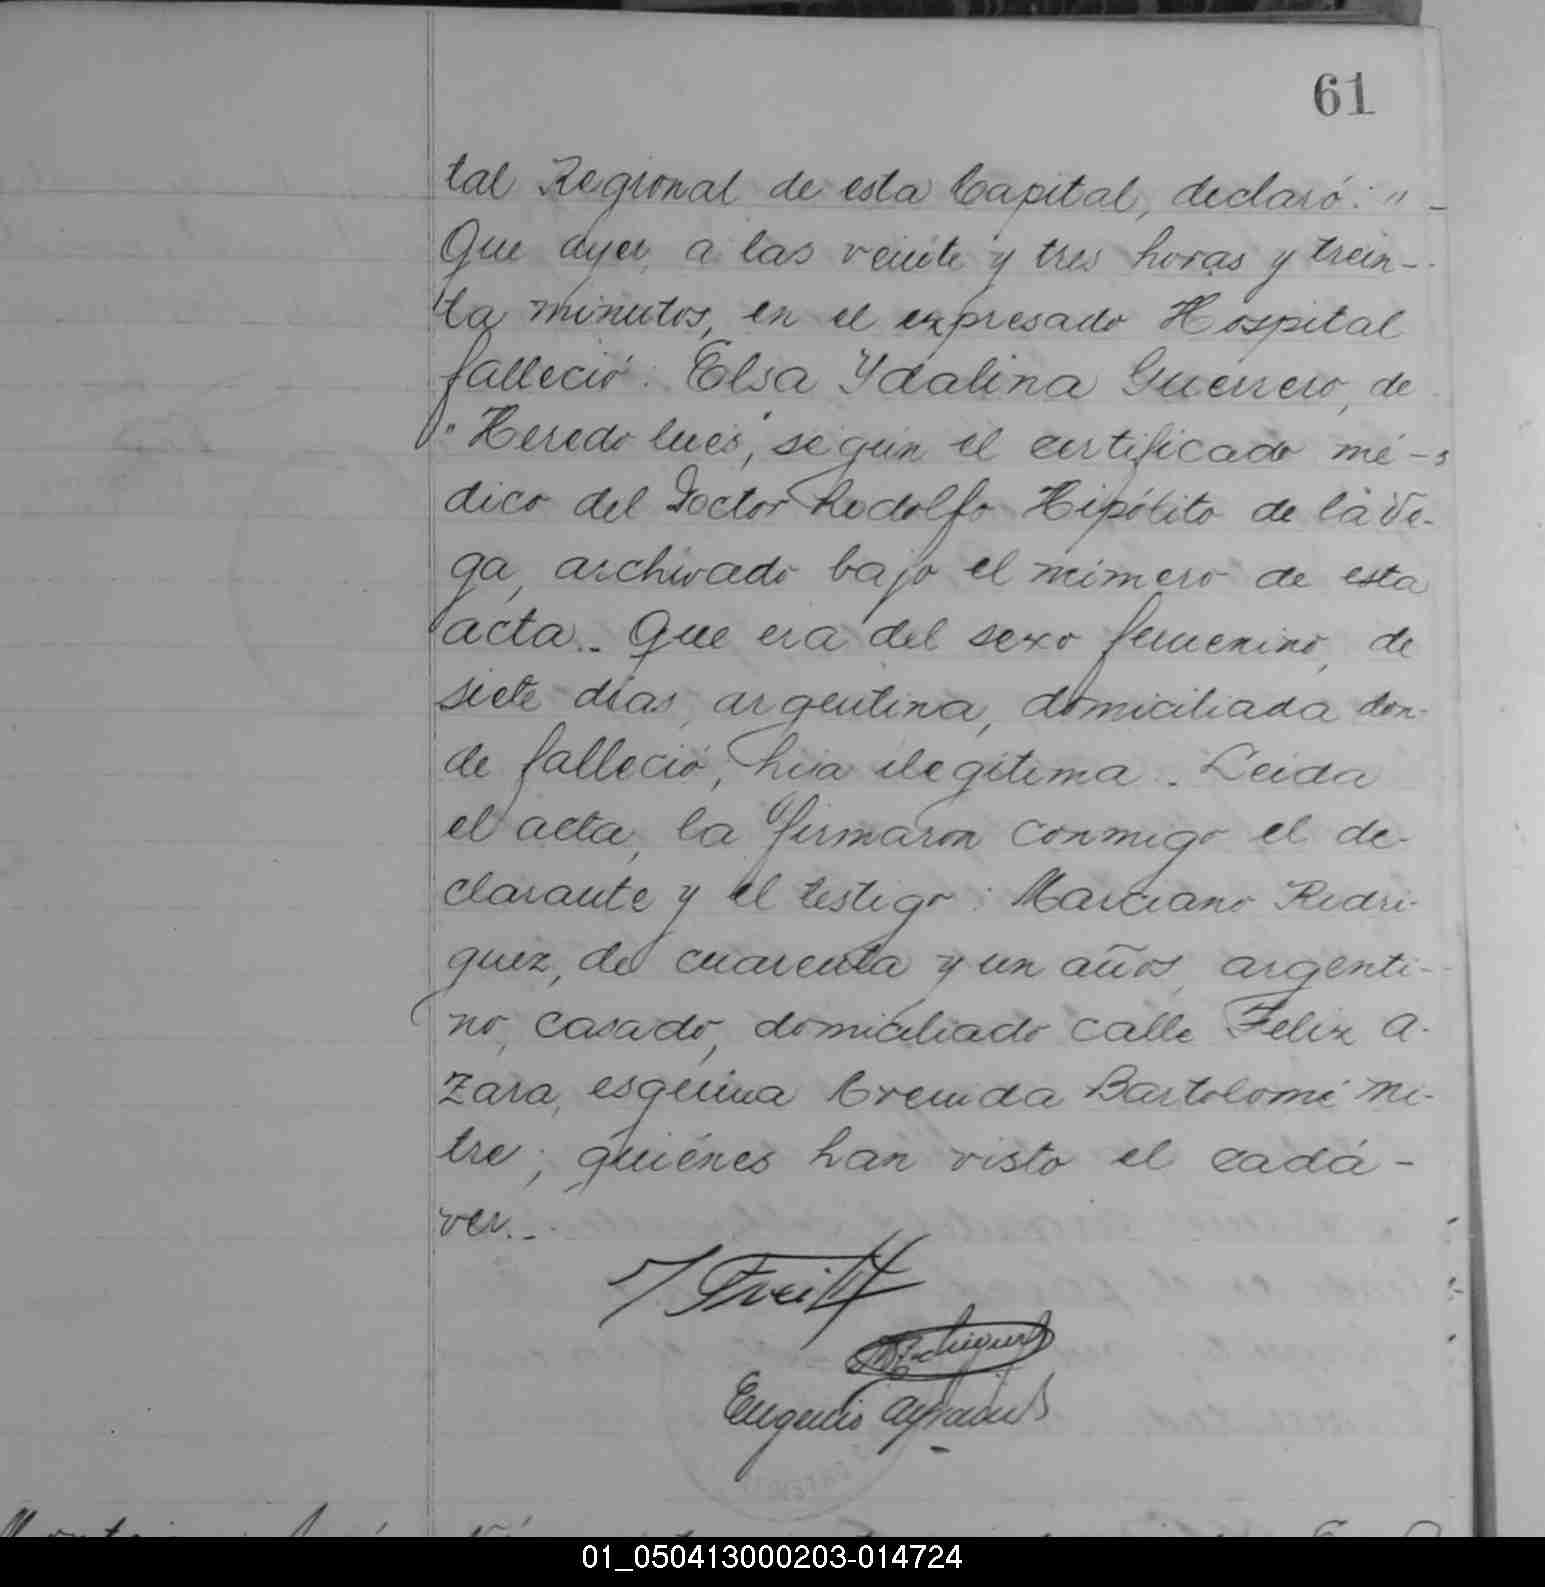 61
tal Regional de esta Capital, declaró: " -
Que ayer, a las veinte y tres horas y trein-
ta minutos, en el expresado Hospital
falleció: Elsa Ydalina Guerrero, de
"Heredo lues", según el certificado mé-
dico del Doctor Rodolfo Hipólito de la Ve-
ga, archivado bajo el número de esta
acta.- Que era del sexo femenino, de
siete días, argentina, domiciliada don-
de falleció, hija ilegítima.- Leida
el acta, la firmaron conmigo el de-
clarante y el testigo: Marciano Rodri-
guez, de cuarenta y un años, argenti-
no, casado, domiciliado calle Felix A-
zara, esquina Avenida Bartolomé Mi-
tre; quiénes han visto el cadá-
ver.-
Eugenio
01_050413000203-014724